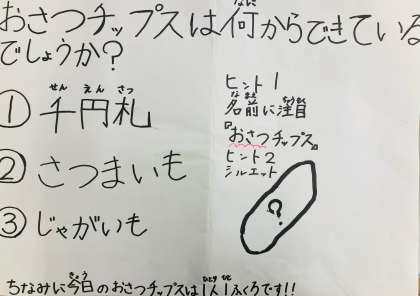 おさつチップスは何からできている
でしょうか?
① 千円札
② さつまいも
③ じゃがいも
ヒント1
名前に注目
『おさつチップス』
ヒント2
シルエット
?
ちなみに今日のおさつチップスは1人1ふくろです!!